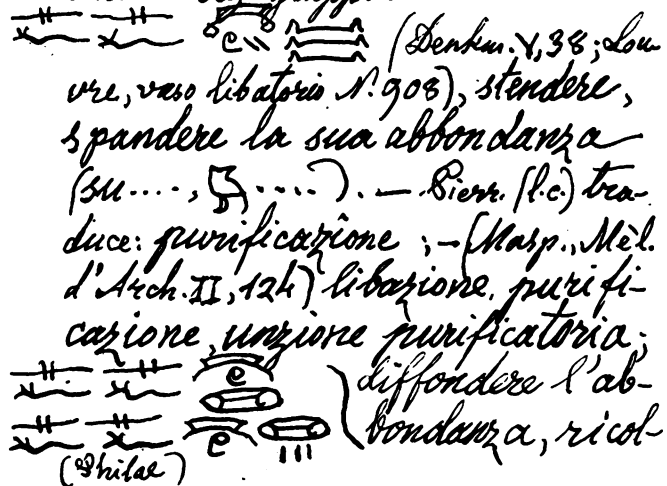 (Denkm. V, 38; Lou-
vre, vaso libatorio N. 908), stendere,
spandere la sua abbondanza
(su...., ....). — Pierr. (l.c.) tra-
duce: purificazione; — (Masp., Mèl.
d'Arch. II, 124) libazione, purifi-
cazione, unzione purificatoria;
diffondere l'ab-
bondanza, ricol-
(Philae)